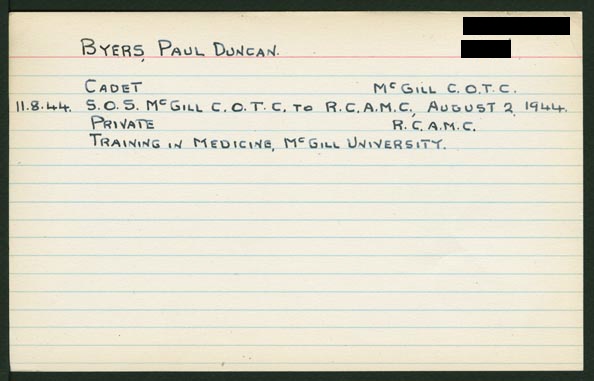 Byers, Paul Duncan.
Cadet McGill C.O.T.C.
11.8.44. S.O.S. McGill C.O.T.C. to R.C.A.M.C., August 2, 1944.
Private R.C.A.M.C.
Training in Medicine, McGill University.